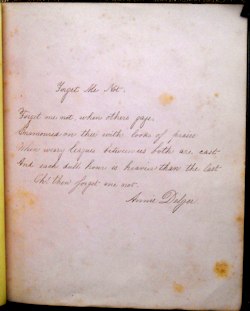 Forget Me Not.
Forget me not, when others gaze
Enamoured on thee with looks of praise
When weary leagues between us both are cast
And each dull hour is heavier than the last
Oh! thou forget me not.
Annie